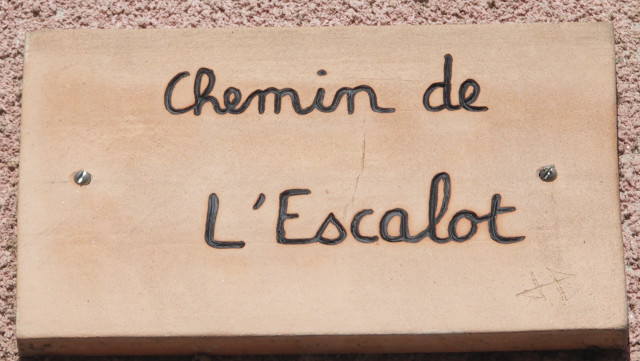 Chemin de
L'Escalot